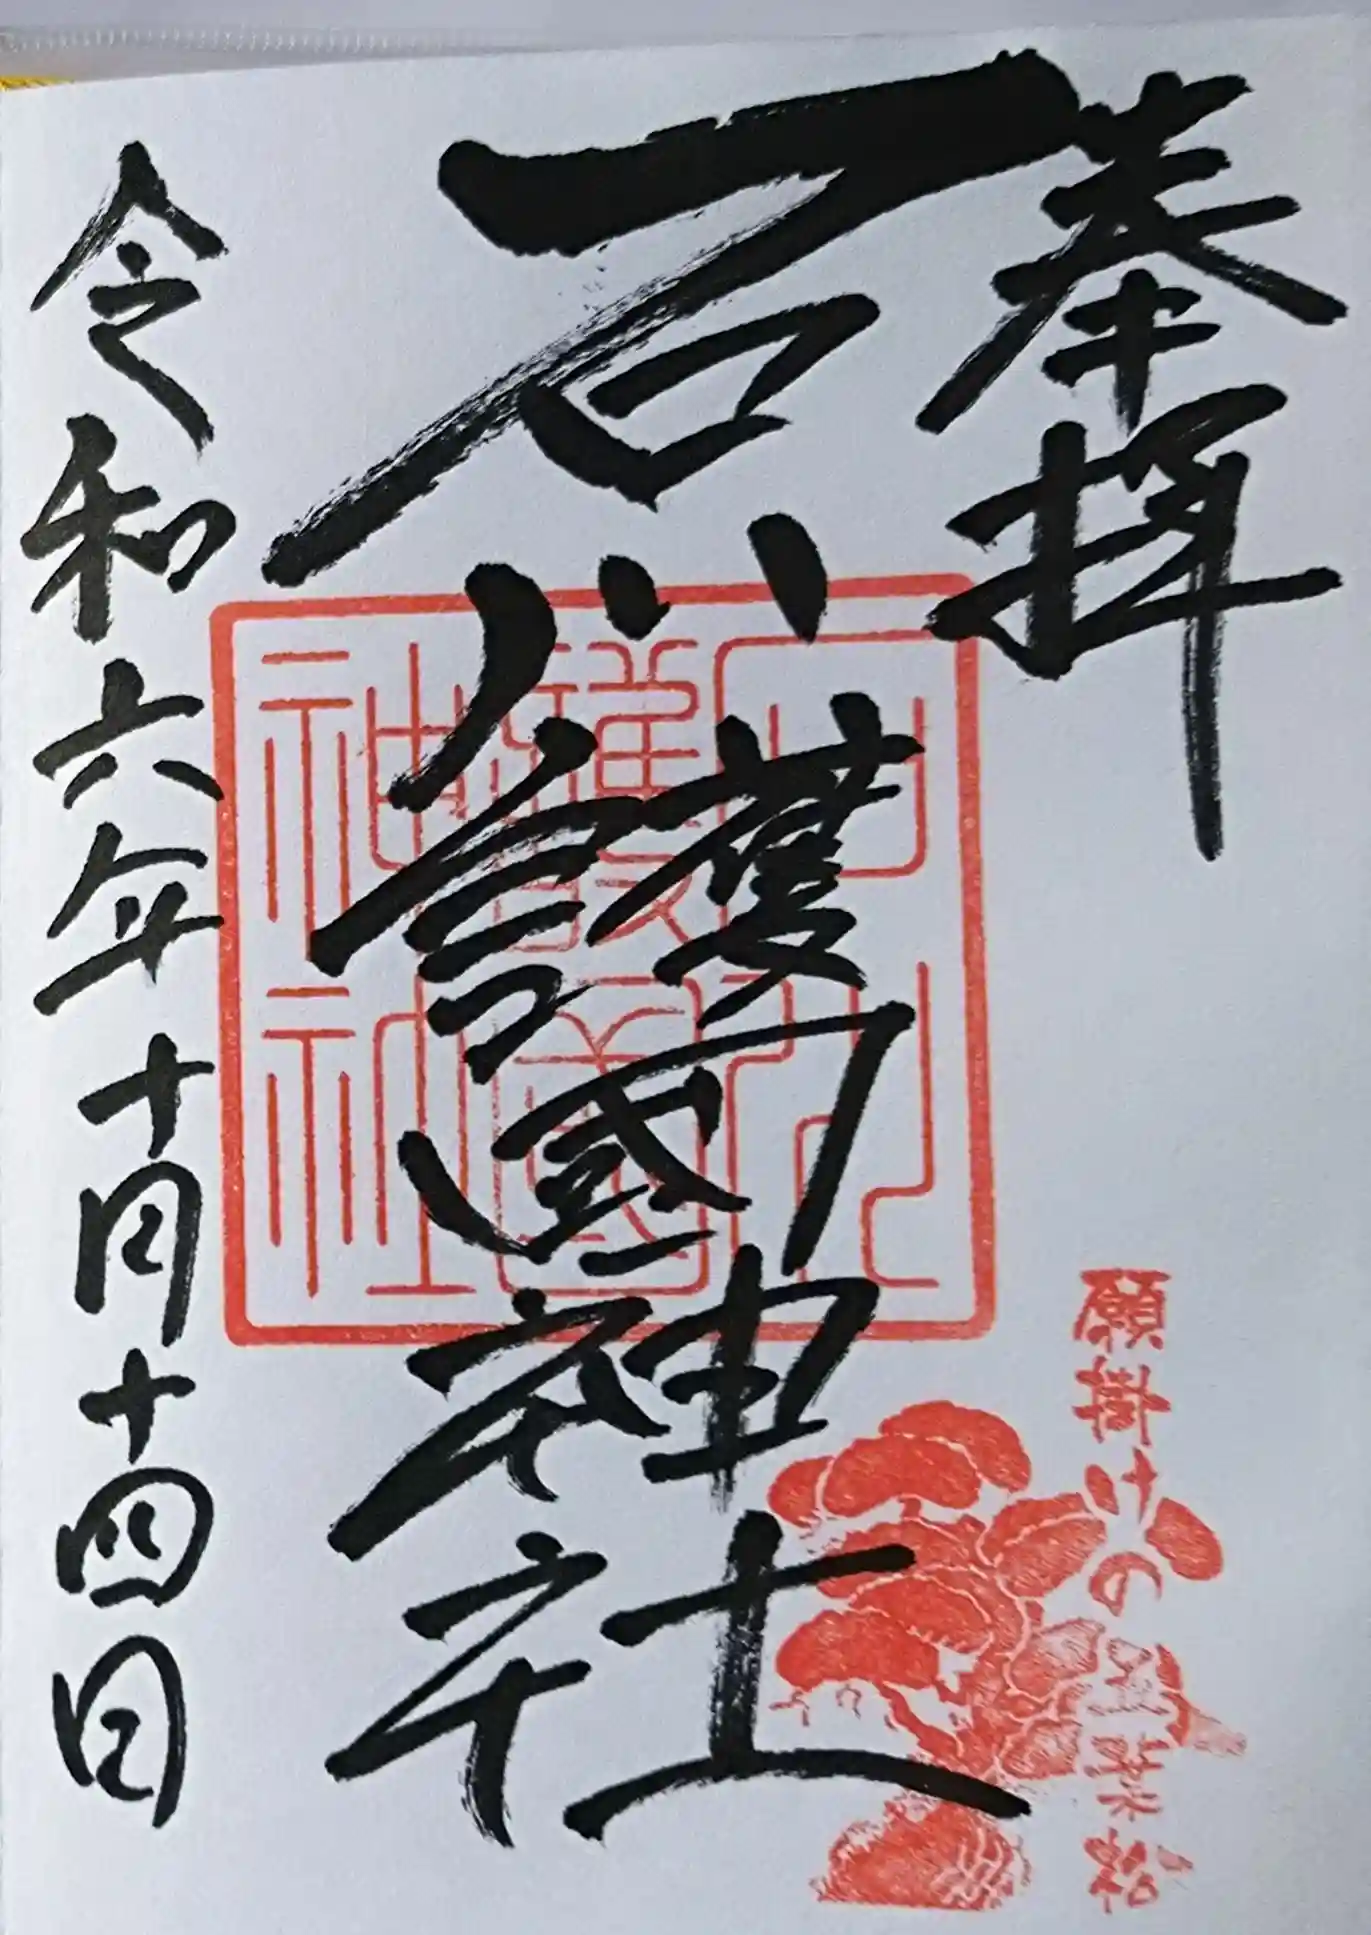 奉拝
石川護國神社
石川護國神社
願掛けの五葉松
令和六年十月十四日